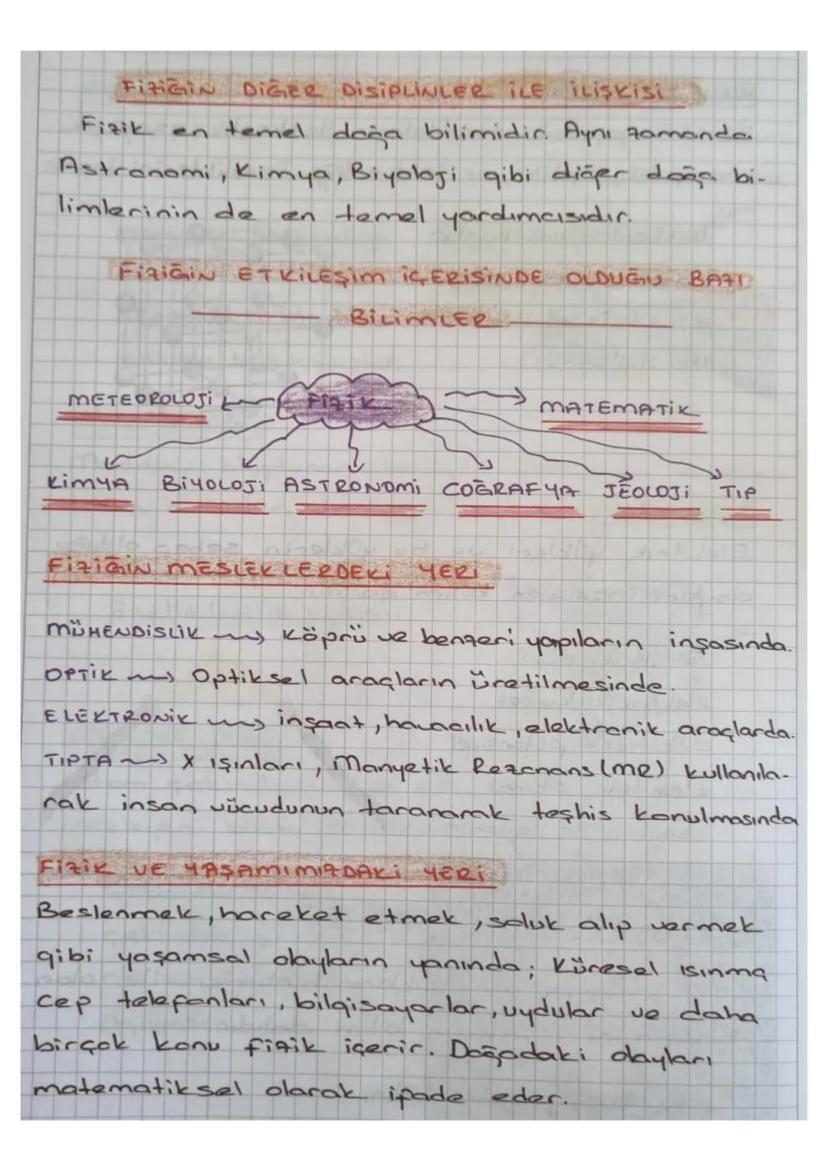 FiZiĞiN DİĞER DiSiPLiNLER iLE iLiŞKiSi
Fizik en temel doğa bilimidir. Aynı zamanda
Astronomi, Kimya, Biyoloji gibi diğer doğa bi-
limlerinin de en temel yardımcısıdır.
FiZiĞiN ETKiLEŞiM iÇERiSiNDE OLDUĞU BAZI
BiLiMLER
METEOROLOJi FiZiK MATEMATiK
KiMYA BiYOLOJi ASTRONOMi COĞRAFYA JEOLOJi TIP
FiZiĞiN MESLEKLERDEKi YERi
MÜHENDiSLiK → Köprü ve benzeri yapıların inşasında.
OPTiK → Optiksel araçların üretilmesinde.
ELEKTRONiK → inşaat, havacılık, elektronik araçlarda.
TIPTA → X ışınları, Manyetik Rezonans (MR) kullanıla-
rak insan vücudunun taranarak teşhis konulmasında
FiZiK VE YAŞAMIMIZDAKi YERi
Beslenmek, hareket etmek, soluk alıp vermek
gibi yaşamsal olayların yanında; Küresel ısınma
cep telefonları, bilgisayarlar, uydular ve daha
birçok konu fizik içerir. Doğadaki olayları
matematiksel olarak ifade eder.